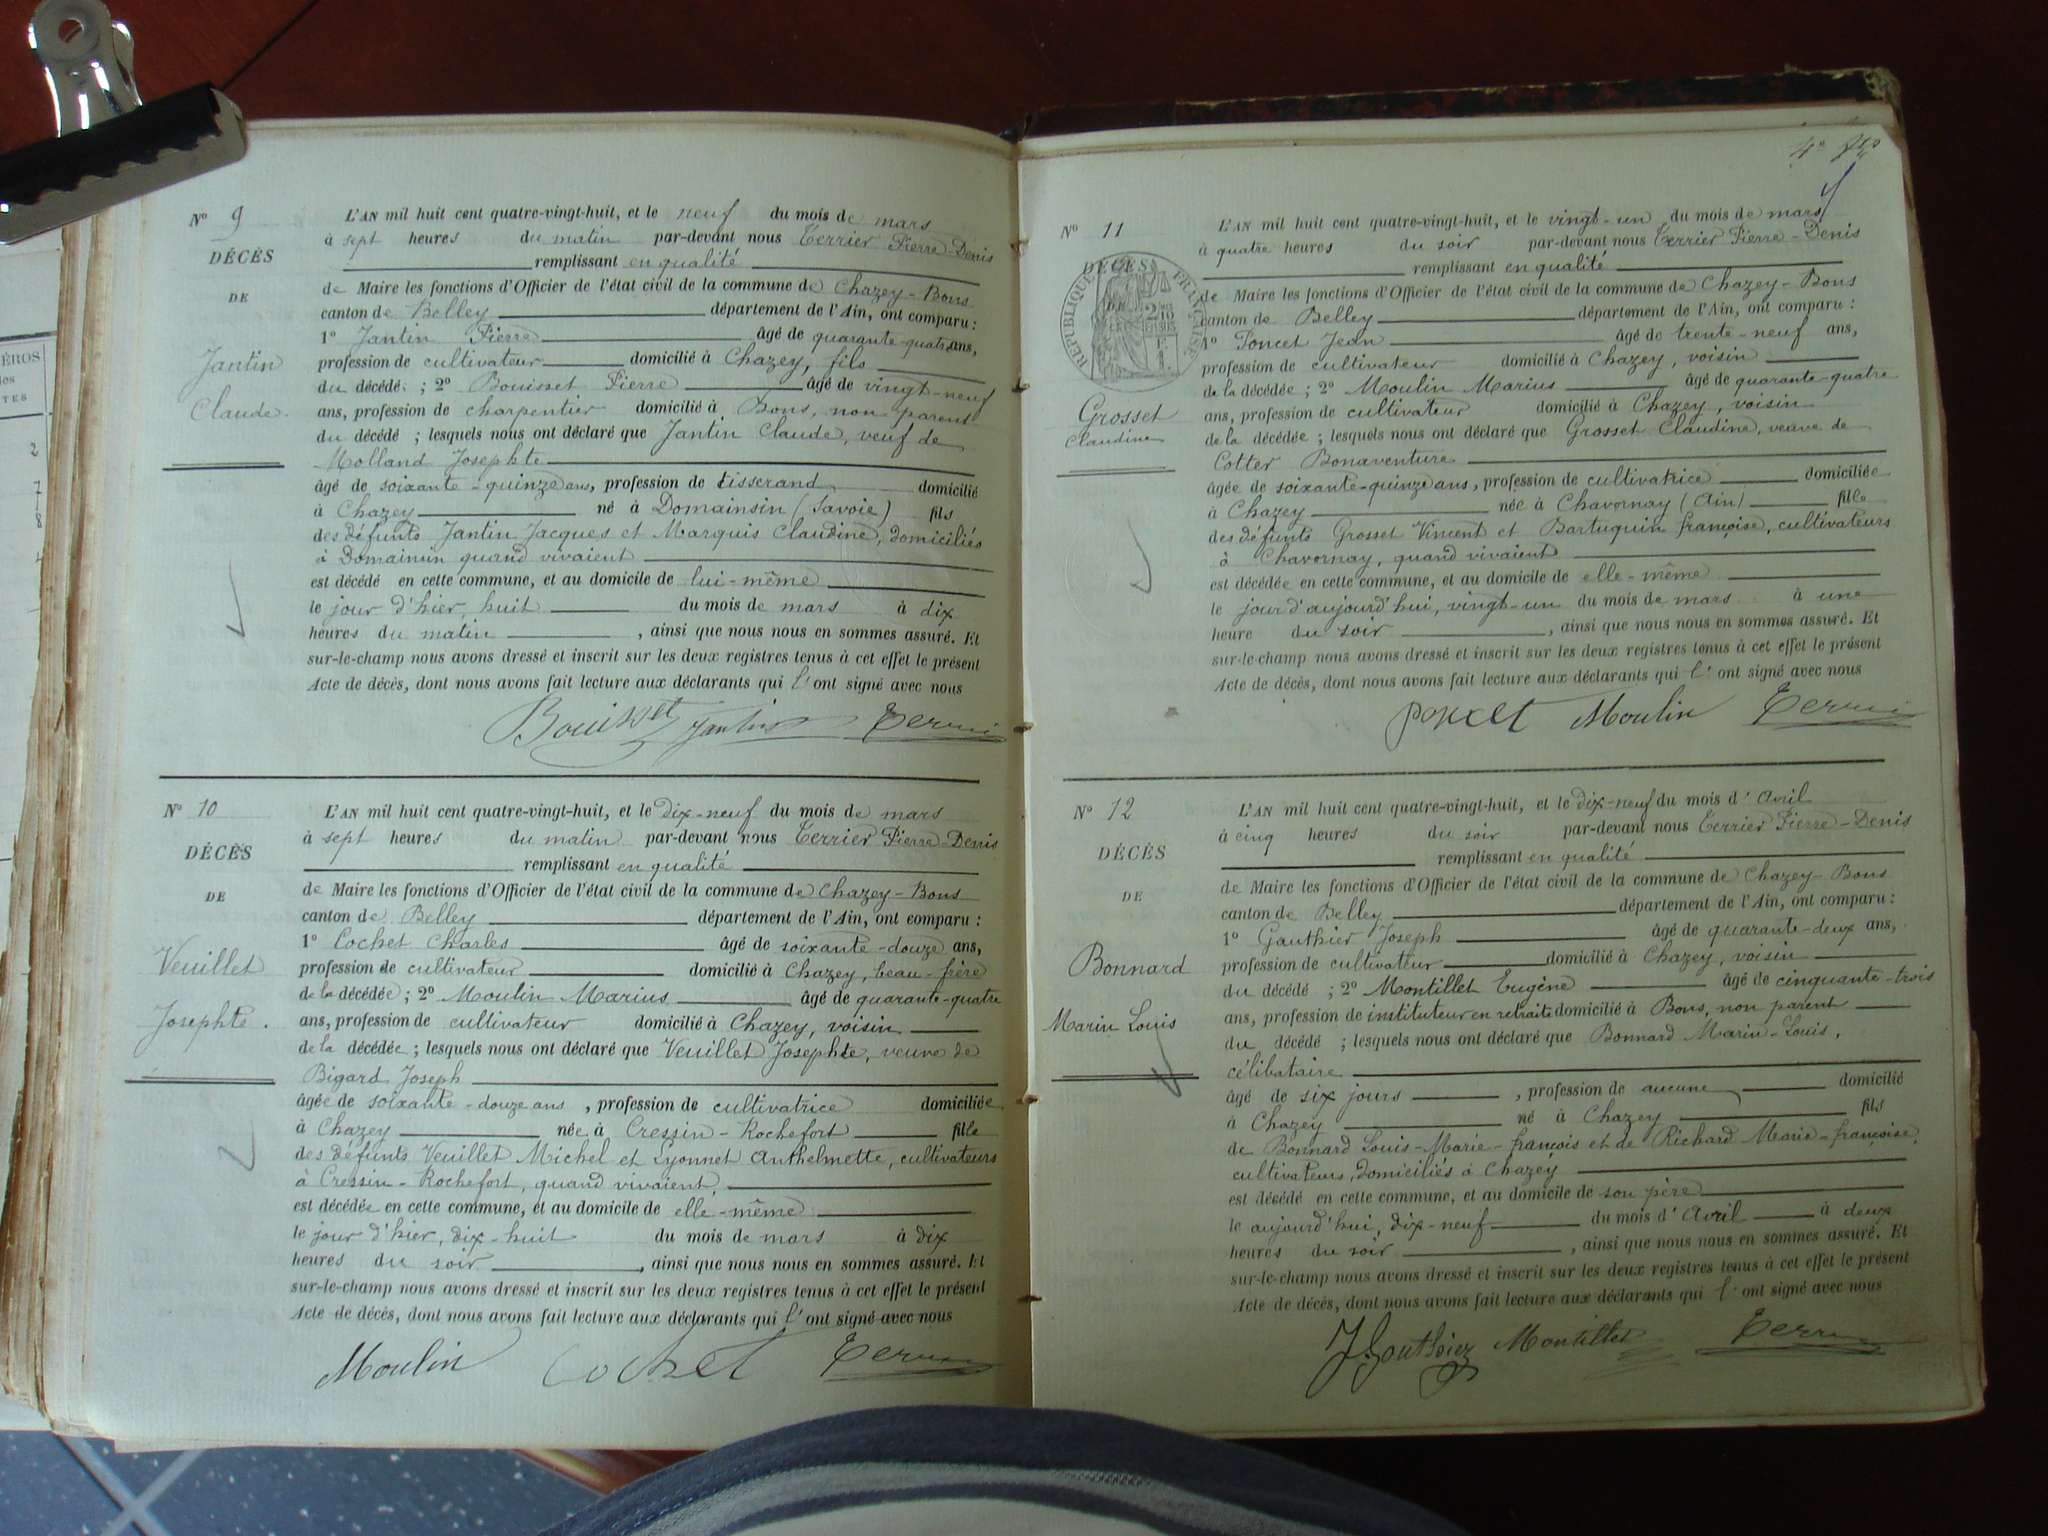 ÉROS
des
TES
2
7
8
N° 9
DÉCÈS
DE
Jantin
Claude
L'AN mil huit cent quatre-vingt-huit, et le neuf du mois de mars
à sept heures du matin par-devant nous Terrier Pierre-Denis
remplissant en qualité
de Maire les fonctions d'Officier de l'état civil de la commune de Chazey-Bons
canton de Belley département de l'Ain, ont comparu :
1° Jantin Pierre âgé de quarante-quatre ans,
profession de cultivateur domicilié à Chazey, fils
du décédé ; 2° Bouisset Pierre âgé de vingt-neuf
ans, profession de charpentier domicilié à Bons, non parent
du décédé ; lesquels nous ont déclaré que Jantin Claude, veuf de
Molland Josephte
âgé de soixante-quinze ans, profession de tisserand domicilié
à Chazey né à Domainsin (Savoie) fils
des défunts Jantin Jacques et Marquis Claudine, domiciliés
à Domainsin quand vivaient
est décédé en cette commune, et au domicile de lui-même
le jour d'hier, huit du mois de mars à dix
heures du matin , ainsi que nous nous en sommes assuré. Et
sur-le-champ nous avons dressé et inscrit sur les deux registres tenus à cet effet le présent
Acte de décès, dont nous avons fait lecture aux déclarants qui l'ont signé avec nous
Bouisset Jantin Terrier
N° 10
DÉCÈS
DE
Veuillet
Josephte.
L'AN mil huit cent quatre-vingt-huit, et le dix-neuf du mois de mars
à sept heures du matin par-devant nous Terrier Pierre-Denis
remplissant en qualité
de Maire les fonctions d'Officier de l'état civil de la commune de Chazey-Bons
canton de Belley département de l'Ain, ont comparu :
1° Cochet Charles âgé de soixante-douze ans,
profession de cultivateur domicilié à Chazey, beau-frère
de la décédée ; 2° Moulin Marius âgé de quarante-quatre
ans, profession de cultivateur domicilié à Chazey, voisin
de la décédée ; lesquels nous ont déclaré que Veuillet Josephte, veuve de
Bigard Joseph
âgée de soixante-douze ans , profession de cultivatrice domiciliée
à Chazey née à Cressin-Rochefort fille
des défunts Veuillet Michel et Lyonnet Anthelmette, cultivateurs
à Cressin-Rochefort, quand vivaient,
est décédée en cette commune, et au domicile de elle-même
le jour d'hier, dix-huit du mois de mars à dix
heures du soir , ainsi que nous nous en sommes assuré. Et
sur-le-champ nous avons dressé et inscrit sur les deux registres tenus à cet effet le présent
Acte de décès, dont nous avons fait lecture aux déclarants qui l'ont signé avec nous
Moulin Cochet Terrier
N° 11
DÉCÈS
RÉPUBLIQUE FRANÇAISE
Grosset
Claudine
L'AN mil huit cent quatre-vingt-huit, et le vingt-un du mois de mars
à quatre heures du soir par-devant nous Terrier Pierre-Denis
remplissant en qualité
de Maire les fonctions d'Officier de l'état civil de la commune de Chazey-Bons
canton de Belley département de l'Ain, ont comparu :
1° Poncet Jean âgé de trente-neuf ans,
profession de cultivateur domicilié à Chazey, voisin
de la décédée ; 2° Moulin Marius âgé de quarante-quatre
ans, profession de cultivateur domicilié à Chazey, voisin
de la décédée ; lesquels nous ont déclaré que Grosset Claudine, veuve de
Cotter Bonaventure
âgée de soixante-quinze ans, profession de cultivatrice domiciliée
à Chazey née à Chavornay (Ain) fille
des défunts Grosset Vincent et Bartuquin françoise, cultivateurs
à Chavornay, quand vivaient
est décédée en cette commune, et au domicile de elle-même
le jour d'aujourd'hui, vingt-un du mois de mars à une
heure du soir , ainsi que nous nous en sommes assuré. Et
sur-le-champ nous avons dressé et inscrit sur les deux registres tenus à cet effet le présent
Acte de décès, dont nous avons fait lecture aux déclarants qui l'ont signé avec nous
Poncet Moulin Terrier
N° 12
DÉCÈS
DE
Bonnard
Marin Louis
L'AN mil huit cent quatre-vingt-huit, et le dix-neuf du mois d'Avril
à cinq heures du soir par-devant nous Terrier Pierre-Denis
remplissant en qualité
de Maire les fonctions d'Officier de l'état civil de la commune de Chazey-Bons
canton de Belley département de l'Ain, ont comparu :
1° Gauthier Joseph âgé de quarante-deux ans,
profession de cultivateur domicilié à Chazey, voisin
du décédé ; 2° Montillet Eugène âgé de cinquante-trois
ans, profession de instituteur en retraite domicilié à Bons, non parent
du décédé ; lesquels nous ont déclaré que Bonnard Marin-Louis,
célibataire
âgé de six jours , profession de aucune domicilié
à Chazey né à Chazey fils
de Bonnard Louis-Marie-françois et de Richard Marie-françoise,
cultivateurs, domiciliés à Chazey
est décédé en cette commune, et au domicile de son père
le aujourd'hui, dix-neuf du mois d'Avril à deux
heures du soir , ainsi que nous nous en sommes assuré. Et
sur-le-champ nous avons dressé et inscrit sur les deux registres tenus à cet effet le présent
Acte de décès, dont nous avons fait lecture aux déclarants qui l'ont signé avec nous
J. Gouthier Montillet Terrier